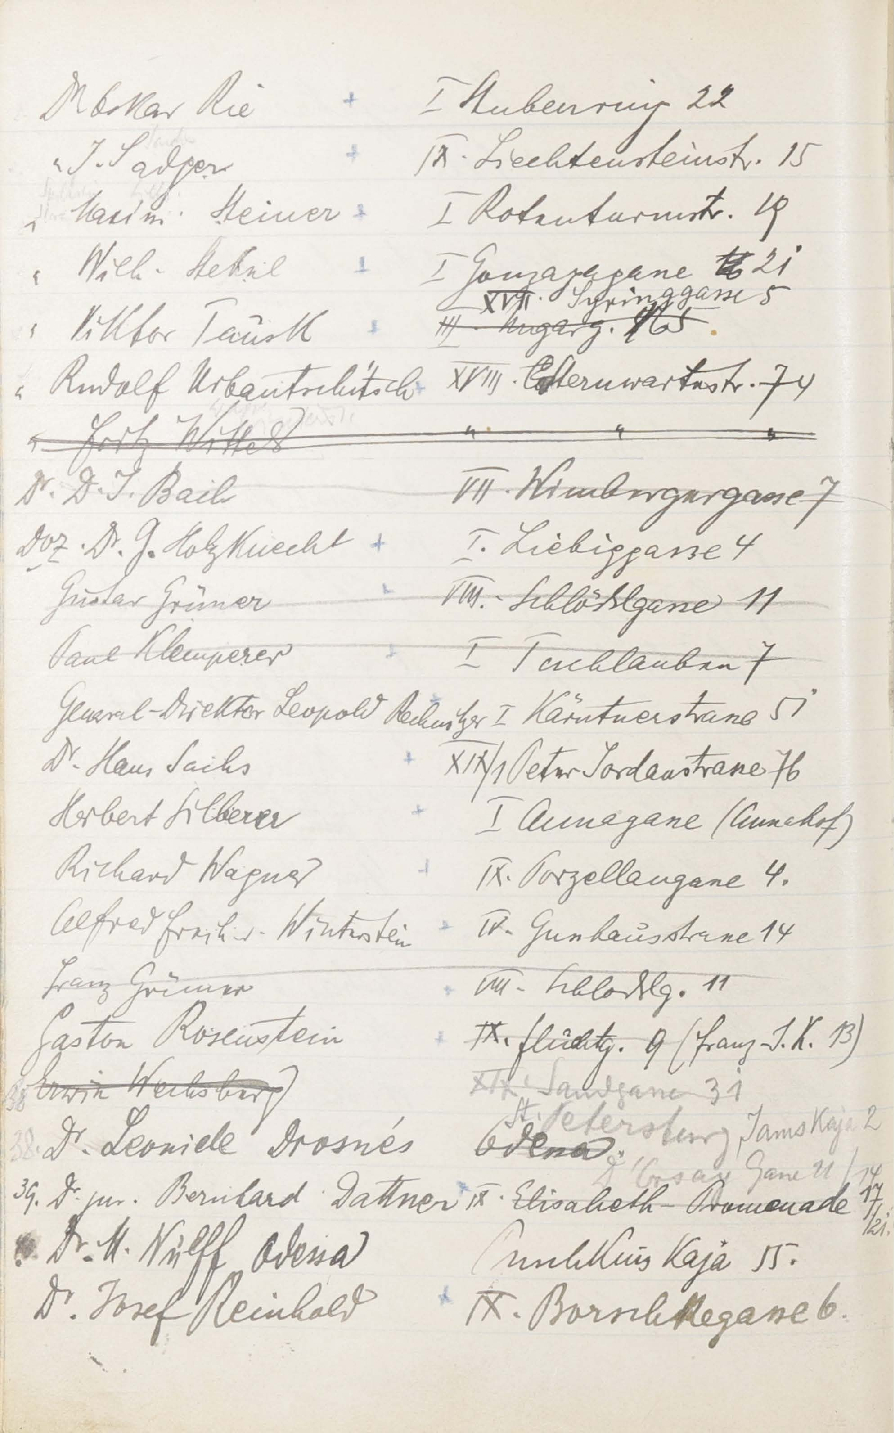 Dr Oskar Rie + I Stubenring 22
" J. Sadger + IX. Liechtensteinstr. 15
" Maxim. Steiner + I Rotenturmstr. 19
" Wilh. Stekel + I Gonzagagasse 21
XVIII. Syringgasse 5
" Viktor Tausk + III Ungarg. 65
" Rudolf Urbantschitsch + XVIII. Sternwartestr. 74
" Fritz Wittels " " "
Dr. D. J. Bach VII. Wimbergergasse 7
Doz. Dr. G. Holzknecht + I. Liebiggasse 4
Gustav Grüner + VIII. Schlösslgasse 11
Paul Klemperer + I Tuchlauben 7
General-Direktor Leopold Rechnitzer + I Kärntnerstrasse 51
Dr. Hans Sachs + XIX/1 Peter Jordanstrasse 76
Herbert Silberer + I Annagasse (Annahof)
Richard Wagner + IX. Porzellangasse 4.
Alfred Freih. v. Winterstein + IV. Gusshausstrasse 14
Franz Grüner + VIII. Schlösslg. 11
Gaston Rosenstein + IX. Flüchtg. 9 (Franz-J.K. 13)
38 Erwin Wechsberg XIX. Sandgasse 31
St. Petersburg, Jamskaja 2
38. Dr. Leonide Drosnés Odessa.
Gasse 21 / 14
39. Dr. jur. Bernhard Dattner + IX. Elisabeth-Promenade 17
Dr. M. Wulff Odessa Puschkinskaja 55.
Dr. Josef Reinhold + IX. Borschkegasse 6.